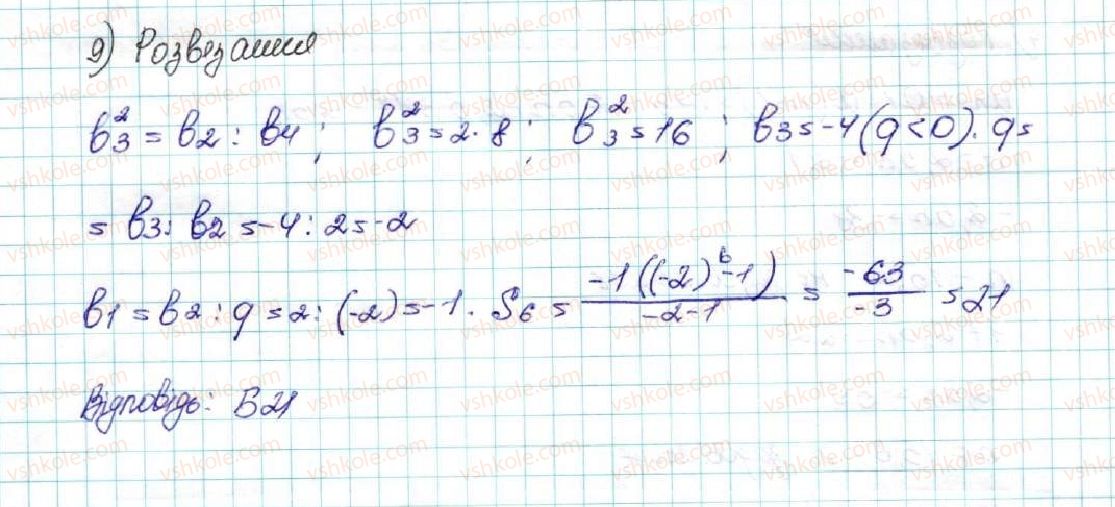 9) Розвязання
b₃² = b₂ : b₄ ; b₃² = 2 · 8 ; b₃² = 16 ; b₃ = -4 (q < 0). q =
= b₃ : b₂ = -4 : 2 = -2
b₁ = b₂ : q = 2 : (-2) = -1. S₆ = \frac{-1((-2)^6 - 1)}{-2-1} = \frac{-63}{-3} = 21
Відповідь: Б 21